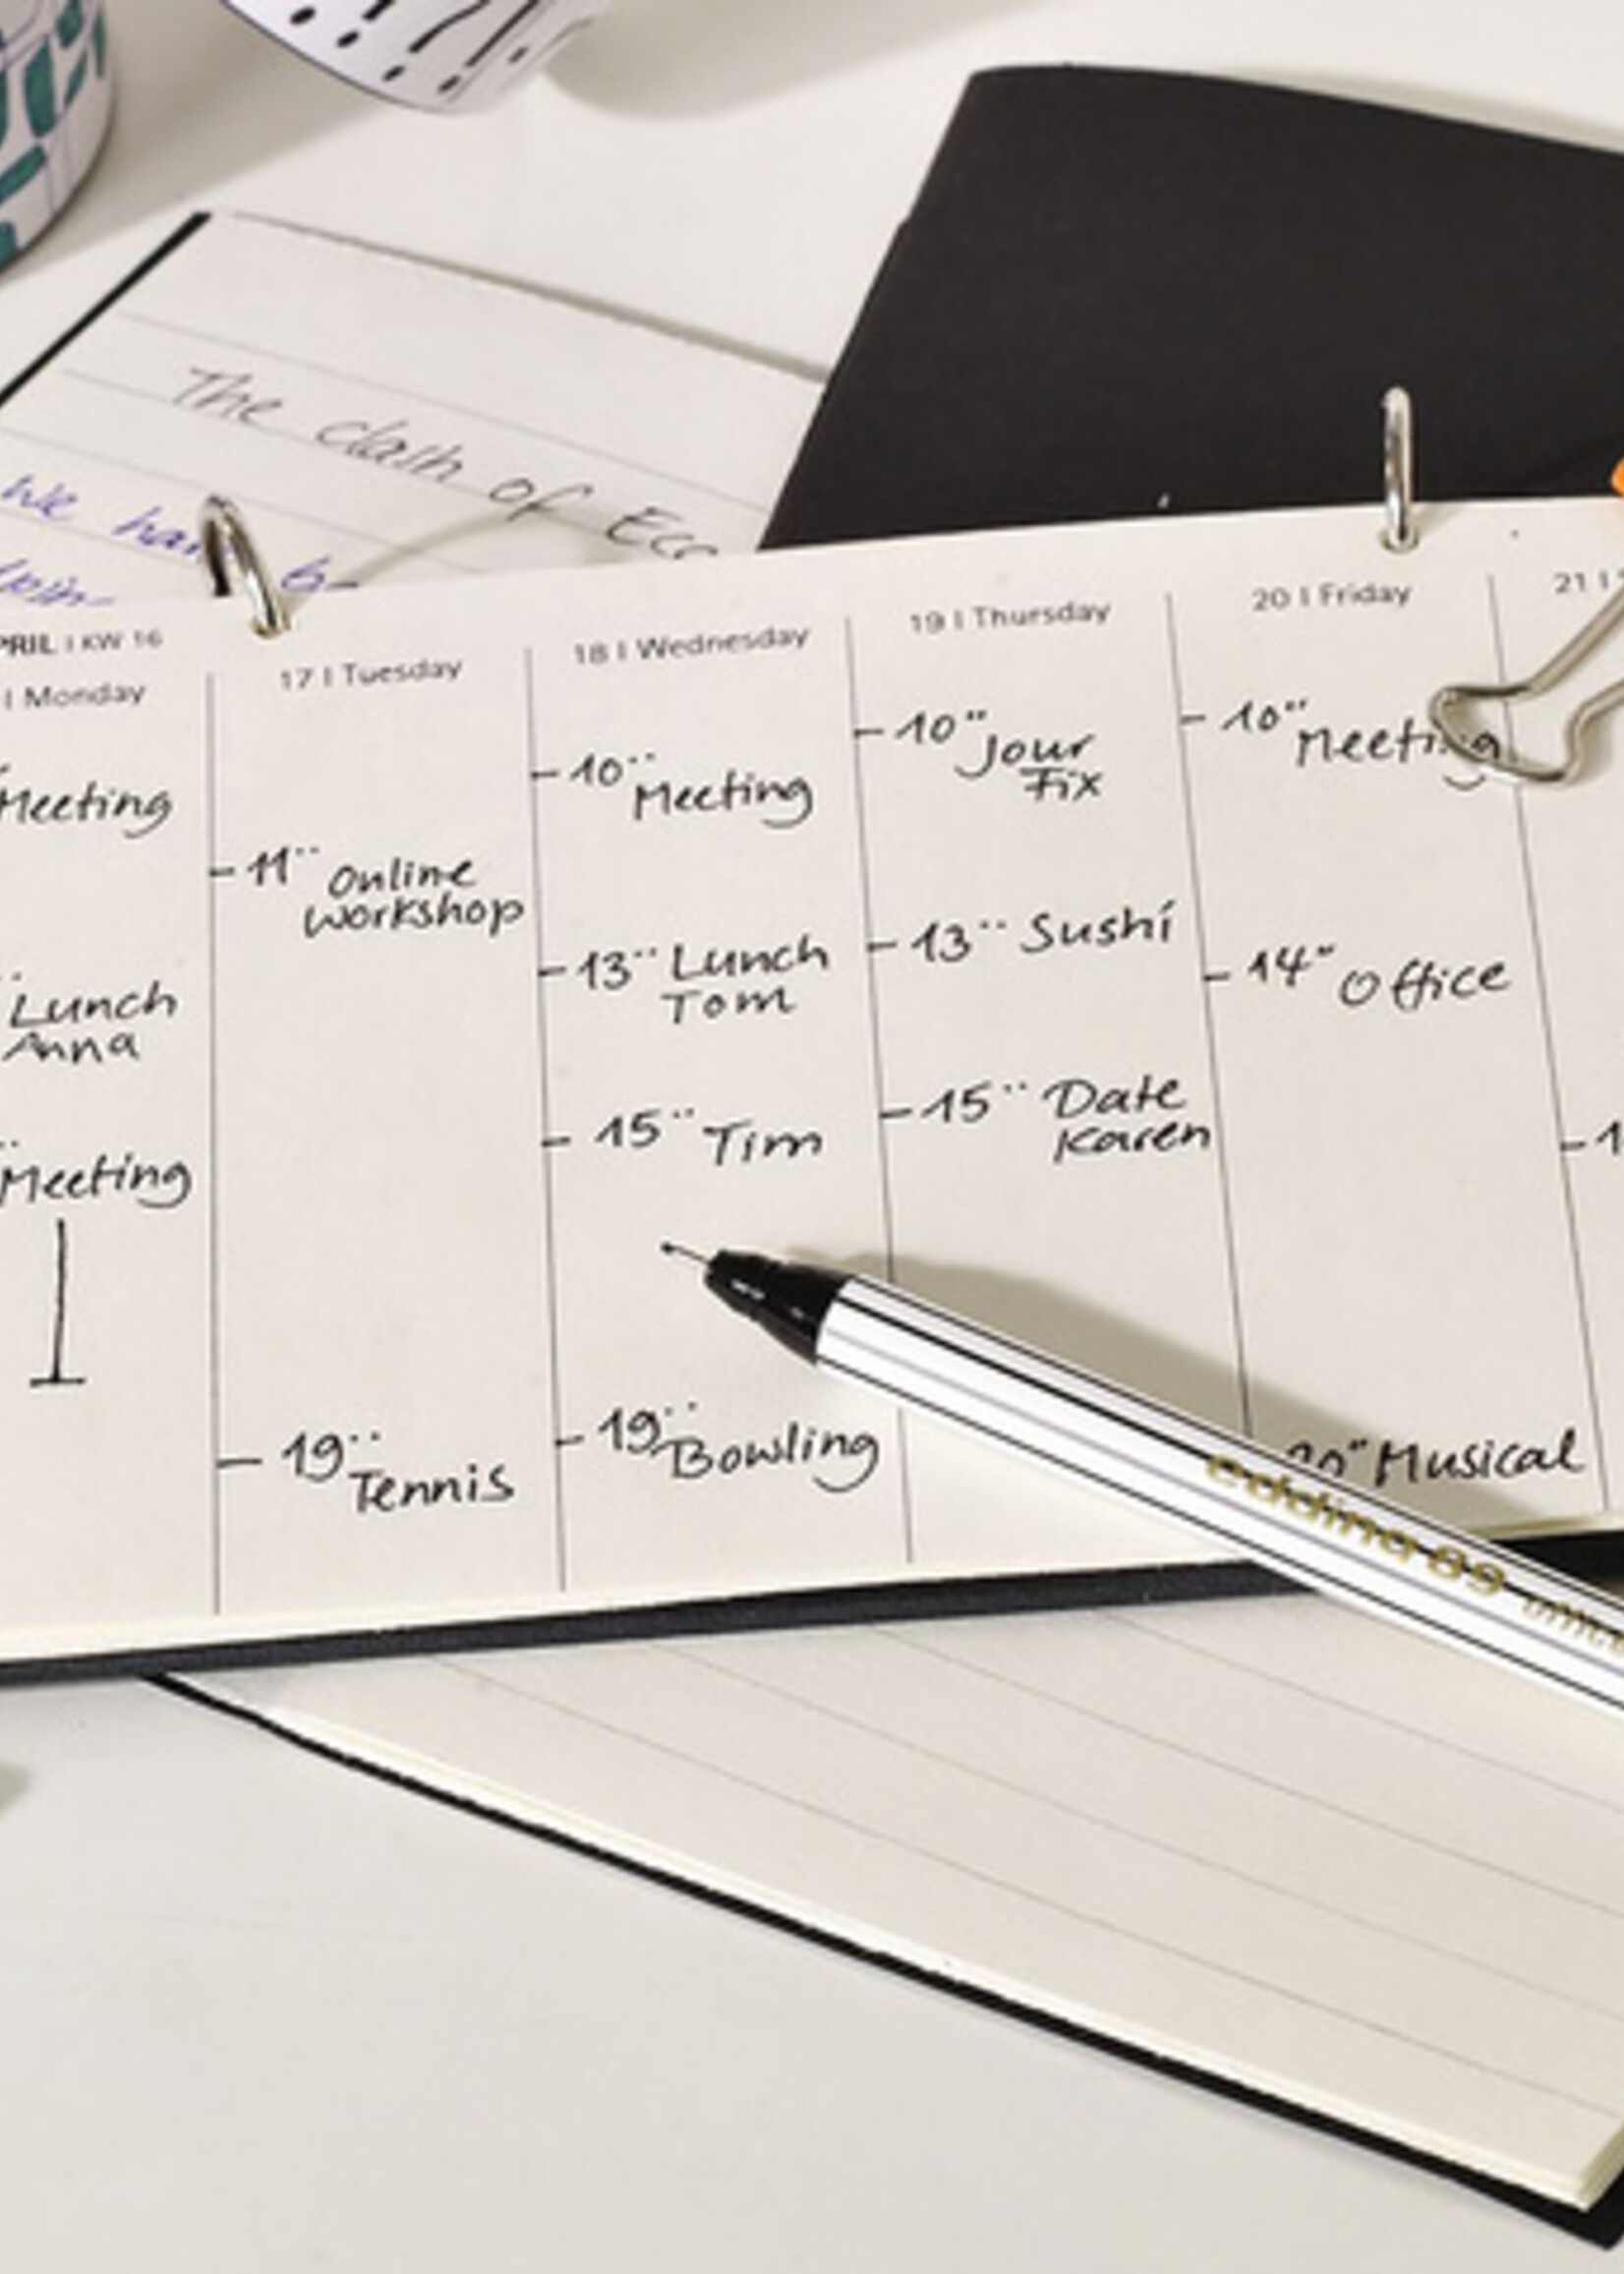 The clash of
we
PRIL | KW 16
| Monday
Meeting
Lunch
Anna
Meeting
17 | Tuesday
11 °° Online
workshop
19 °°
Tennis
18 | Wednesday
10 °°
Meeting
13 °° Lunch
Tom
15 °° Tim
19 °°
Bowling
19 | Thursday
10 °° Jour
Fix
13 °° Sushi
15 °° Date
Karen
20 | Friday
10 °°
Meeting
14 °° Office
Musical
21 |
edding 89 office